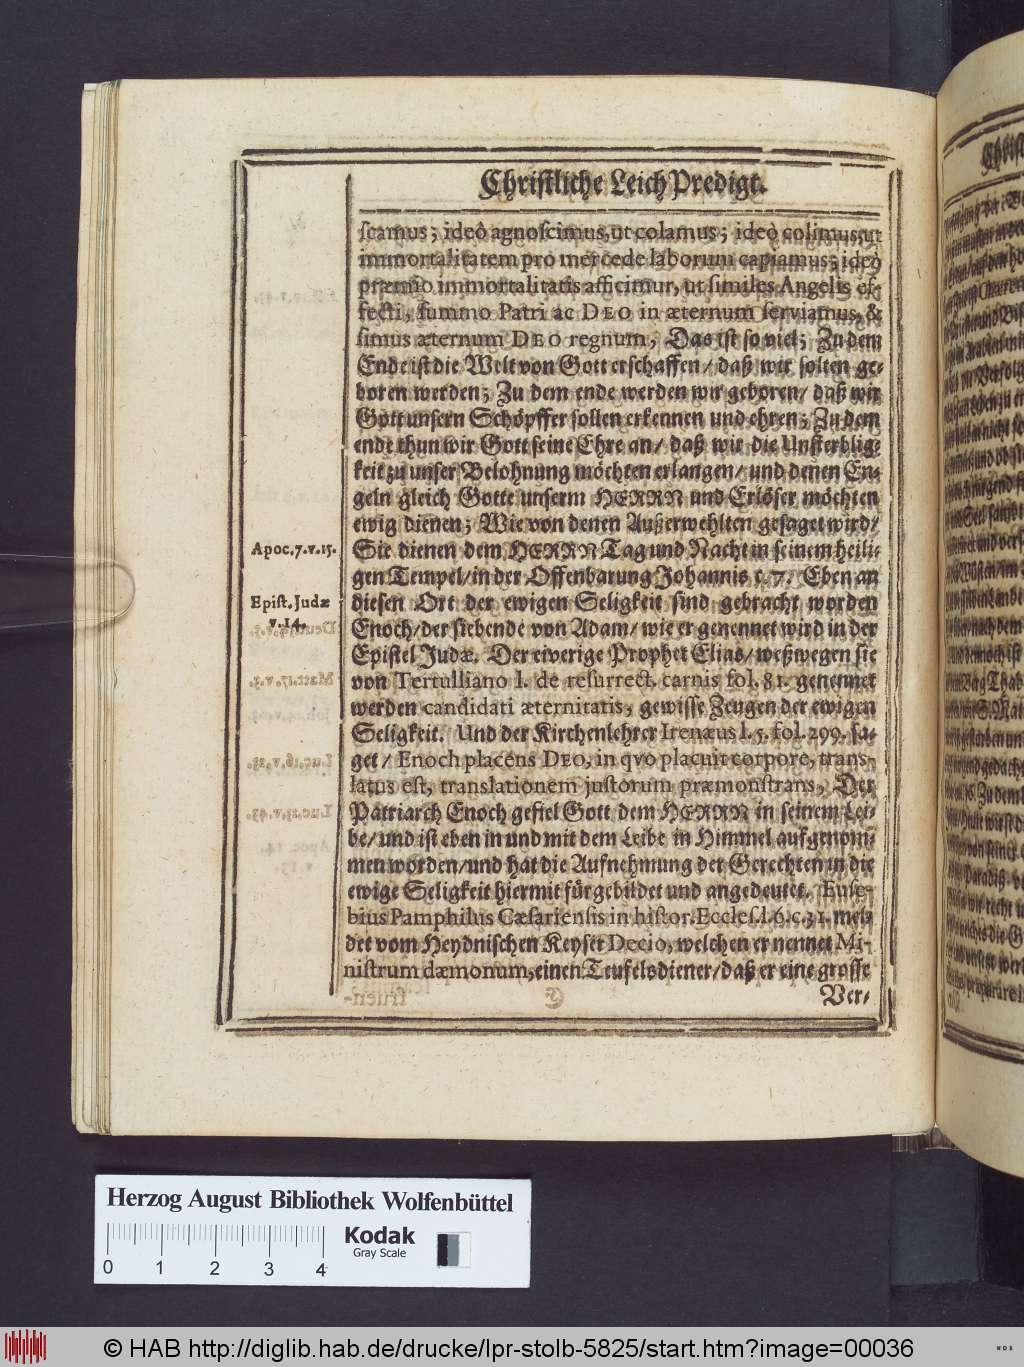 Christliche Leich Predigt.
scamus; ideò agnoscimus, ut colamus; ideò colimus, ut
immortalitatem pro mercede laborum capiamus; ideò
præmio immortalitatis afficimur, ut similes Angelis ef-
fecti, summo Patri ac DEO in æternum serviamus, &
simus æternum DEO regnum, Das ist so viel; Zu dem
Ende ist die Welt von Gott erschaffen/ daß wir solten ge-
boren werden; Zu dem ende werden wir geboren/ daß wir
Gott unsern Schöpffer sollen erkennen und ehren; Zu dem
ende thun wir Gott seine Ehre an/ daß wir die Unsterblig-
keit zu unser Belohnung möchten erlangen/ und denen En-
geln gleich Gotte unserm HERRN und Erlöser möchten
ewig dienen; Wie von denen Außerwehlten gesaget wird/
Apoc.7.v.15.
Sie dienen dem HERRN Tag und Nacht in seinem heili-
gen Tempel/ in der Offenbarung Johannis c. 7. Eben an
Epist. Judæ
v.14.
diesen Ort der ewigen Seligkeit sind gebracht worden
Enoch/ der siebende von Adam/ wie er genennet wird in der
Epistel Judæ. Der eiverige Prophet Elias/ weßwegen sie
von Tertulliano l. de resurrect. carnis fol. 81. genennet
werden candidati æternitatis, gewisse Zeugen der ewigen
Seligkeit. Und der Kirchenlehrer Irenæus l. 5. fol. 299. sa-
get/ Enoch placens DEO, in qvo placuit corpore, trans-
latus est, translationem justorum præmonstrans, Der
Patriarch Enoch gefiel Gott dem HERRN in seinem Lei-
be/ und ist eben in und mit dem Leibe in Himmel aufgenom-
men worden/ und hat die Aufnehmung der Gerechten in die
ewige Seligkeit hiermit fürgebildet und angedeutet. Euse-
bius Pamphilus Cæsariensis in histor. Eccles. l. 6. c. 31. mel-
det vom Heydnischen Keyser Decio, welchen er nennet Mi-
nistrum dæmonum, einen Teufelsdiener/ daß er eine grosse
Ver-
Herzog August Bibliothek Wolfenbüttel
Kodak
Gray Scale
0 1 2 3 4
© HAB http://diglib.hab.de/drucke/lpr-stolb-5825/start.htm?image=00036